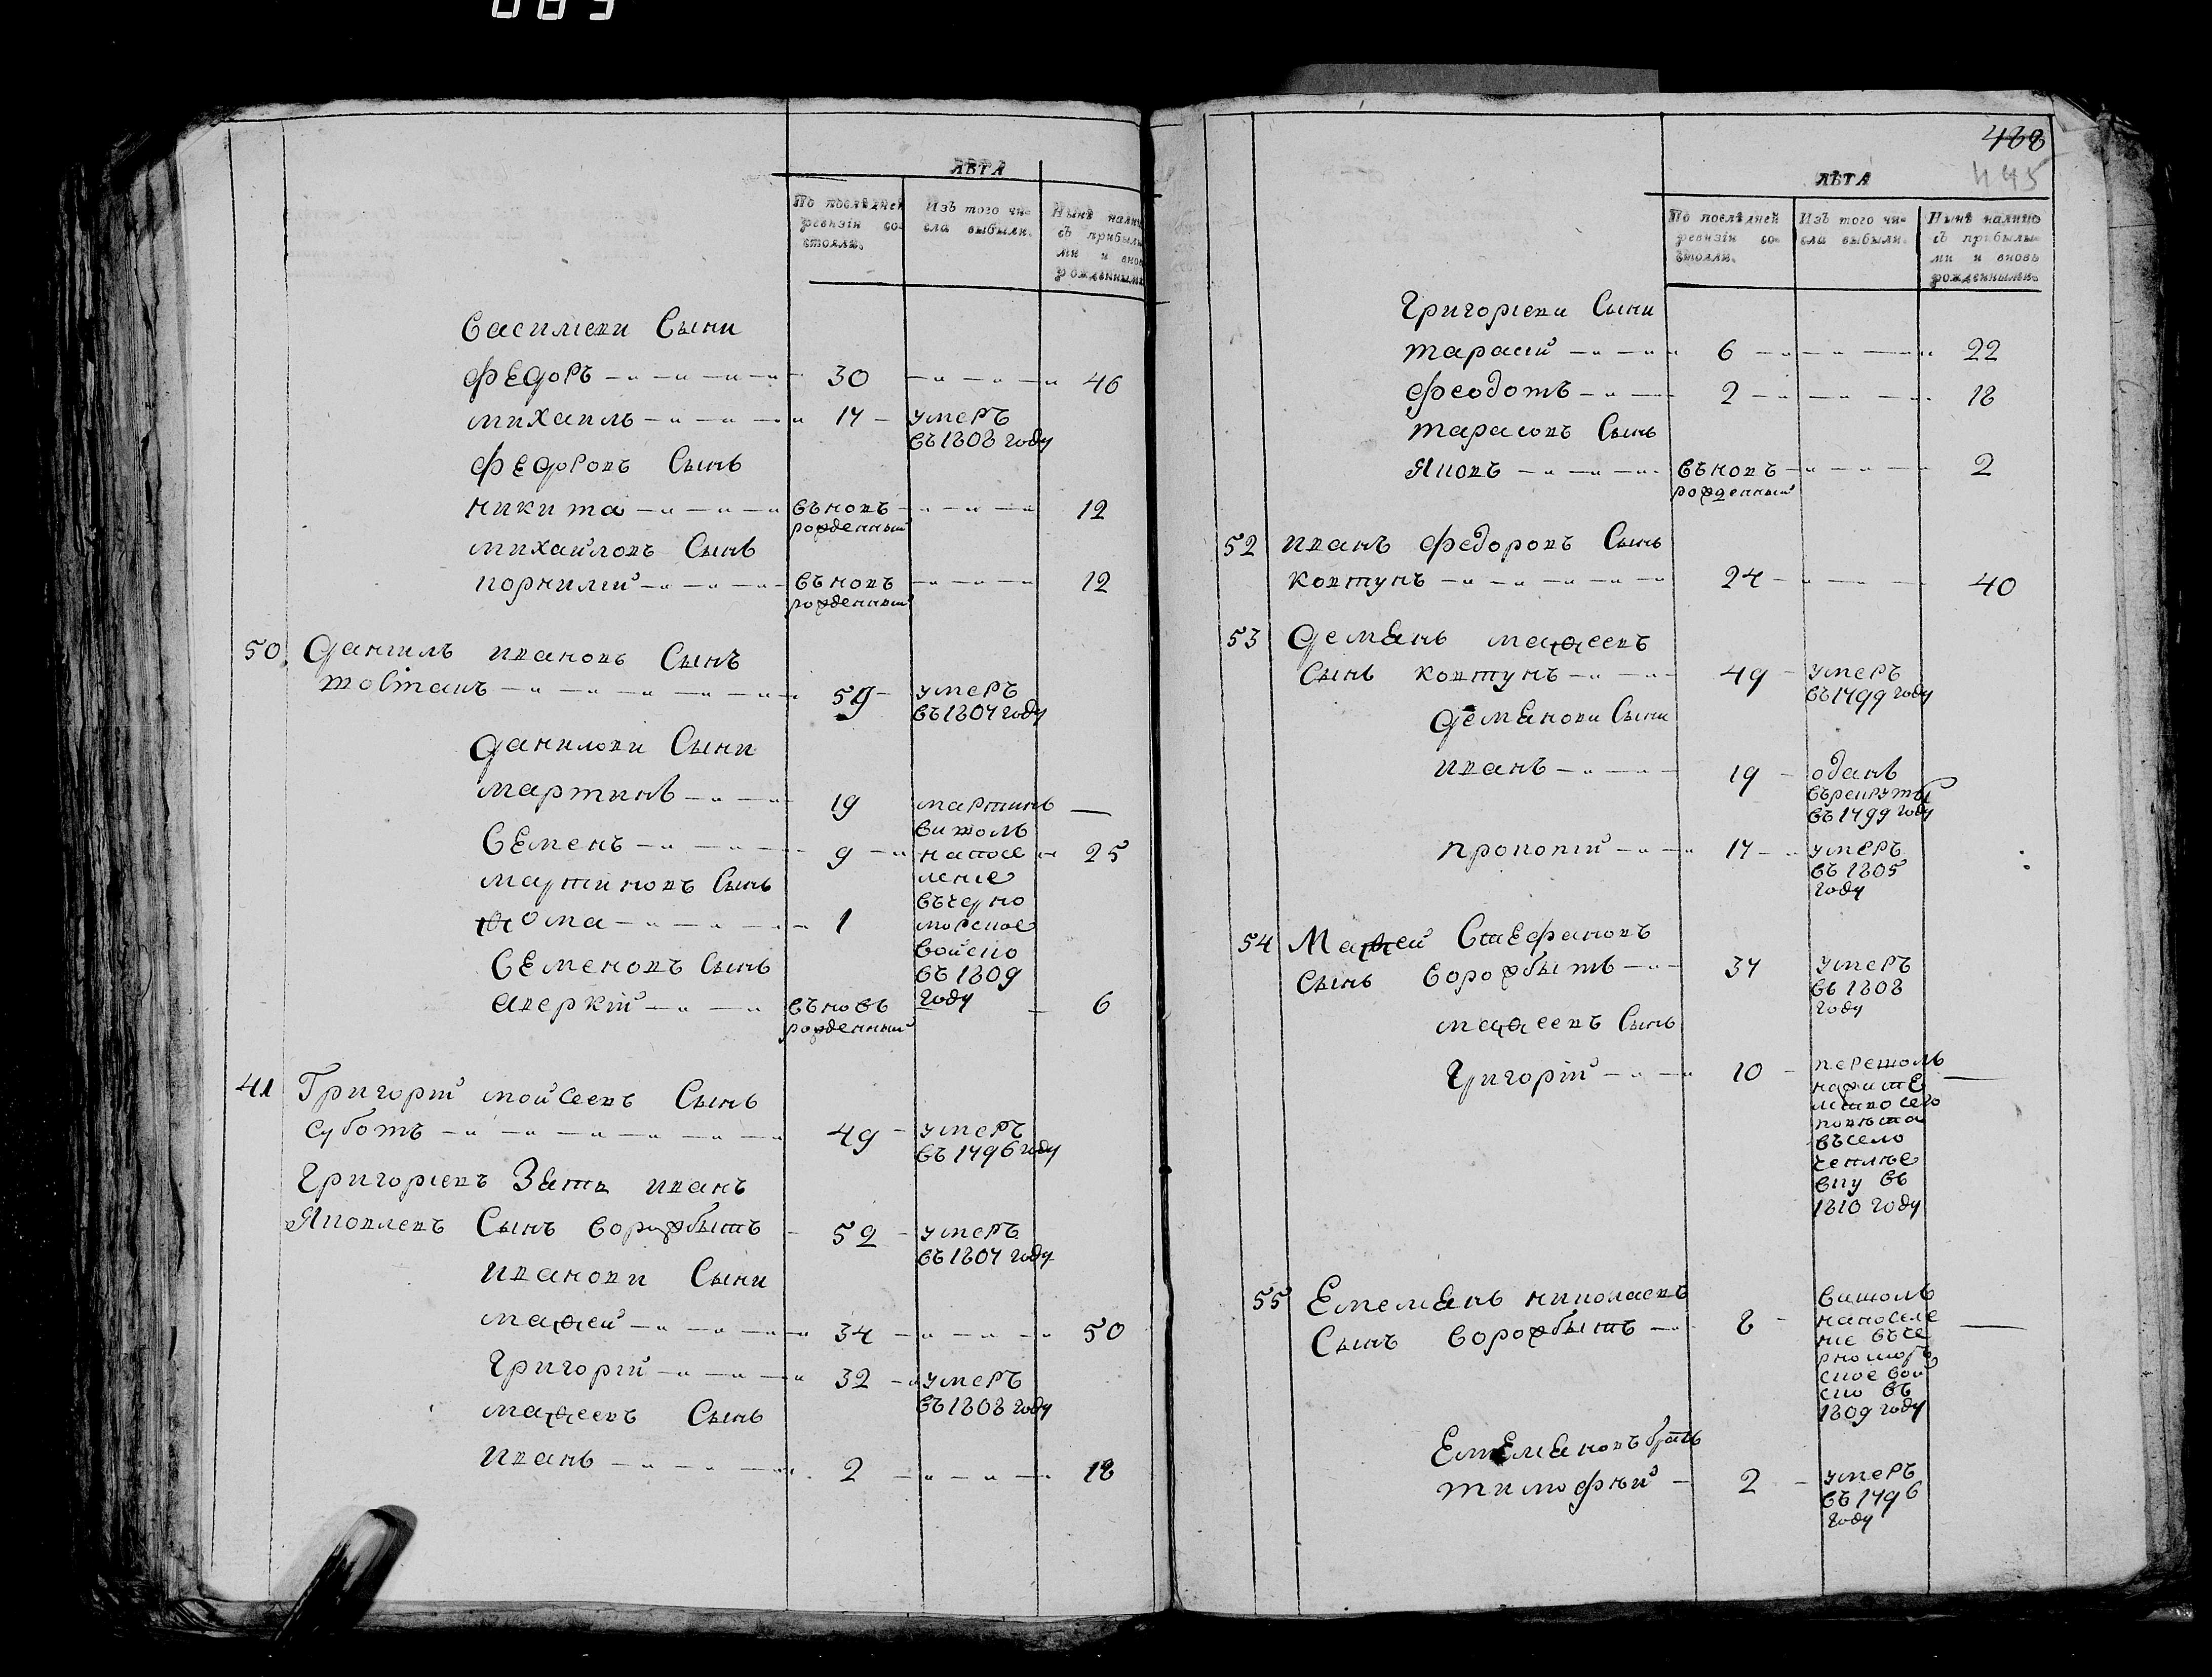 083
ЛѢТА
По послѣдней ревизіи состояли.
Изъ того числа выбыли.
Нынѣ налицо съ прибылыми и вновь рожденными
Василиеви Сыни
Федоръ 30 46
михаилъ 17 умеръ
въ 1808 году
Федоровъ Сынъ
никита въновъ 12
рожденный
михайловъ Сынъ
корнилій въновъ 12
рожденный
50 Даниилъ ивановъ Сынъ
59 умеръ
въ 1807 году
Данилови Сыни
мартинъ 19 мартинъ
вишолъ
Семенъ 9 напосе 25
ление
мартиновъ Сынъ
въчерно
Ѳома 1 морское
войско
Семеновъ Сынъ
въ 1809
аверкій въновъ году 6
рожденный
41 Григорій мойсеевъ Сынъ
суботъ 49 умеръ
въ 1796 году
Григориевъ Зять иванъ
Яковлевъ Сынъ ворожбытъ 52 умеръ
въ 1807 году
иванови Сыни
маѳей 34 50
Григорій 32 умеръ
въ 1808 году
маѳеевъ Сынъ
иванъ 2 18
468
445
ЛѢТА
По послѣдней ревизіи состояли.
Изъ того числа выбыли.
Нынѣ налицо съ прибылыми и вновь рожденными.
Григориеви Сыни
тарасій 6 22
Феодотъ 2 18
тарасовъ Сынъ
Яковъ въновъ 2
рожденный
52 иванъ Федоровъ Сынъ
ковтунъ 24 40
53 Демянъ маѳеевъ
Сынъ ковтунъ 49 умеръ
въ 1799 году
Демянови Сыни
иванъ 19 оданъ
върекруты
въ 1799 году
прокопій 17 умеръ
въ 1805
году
54 Маѳей Стефановъ
Сынъ ворожбытъ 37 умеръ
въ 1808
году
маѳеевъ Сынъ
Григорій 10 перешолъ
нажите
лство сего
повѣта
въсело
въ
1810 году
55 Емелянъ николаевъ
Сынъ ворожбытъ 8 вишолъ
напоселе
ние въче
рномор
ское вой
ско въ
1809 году
Емеляновъ братъ
тимофѣй 2 умеръ
въ 1796
году